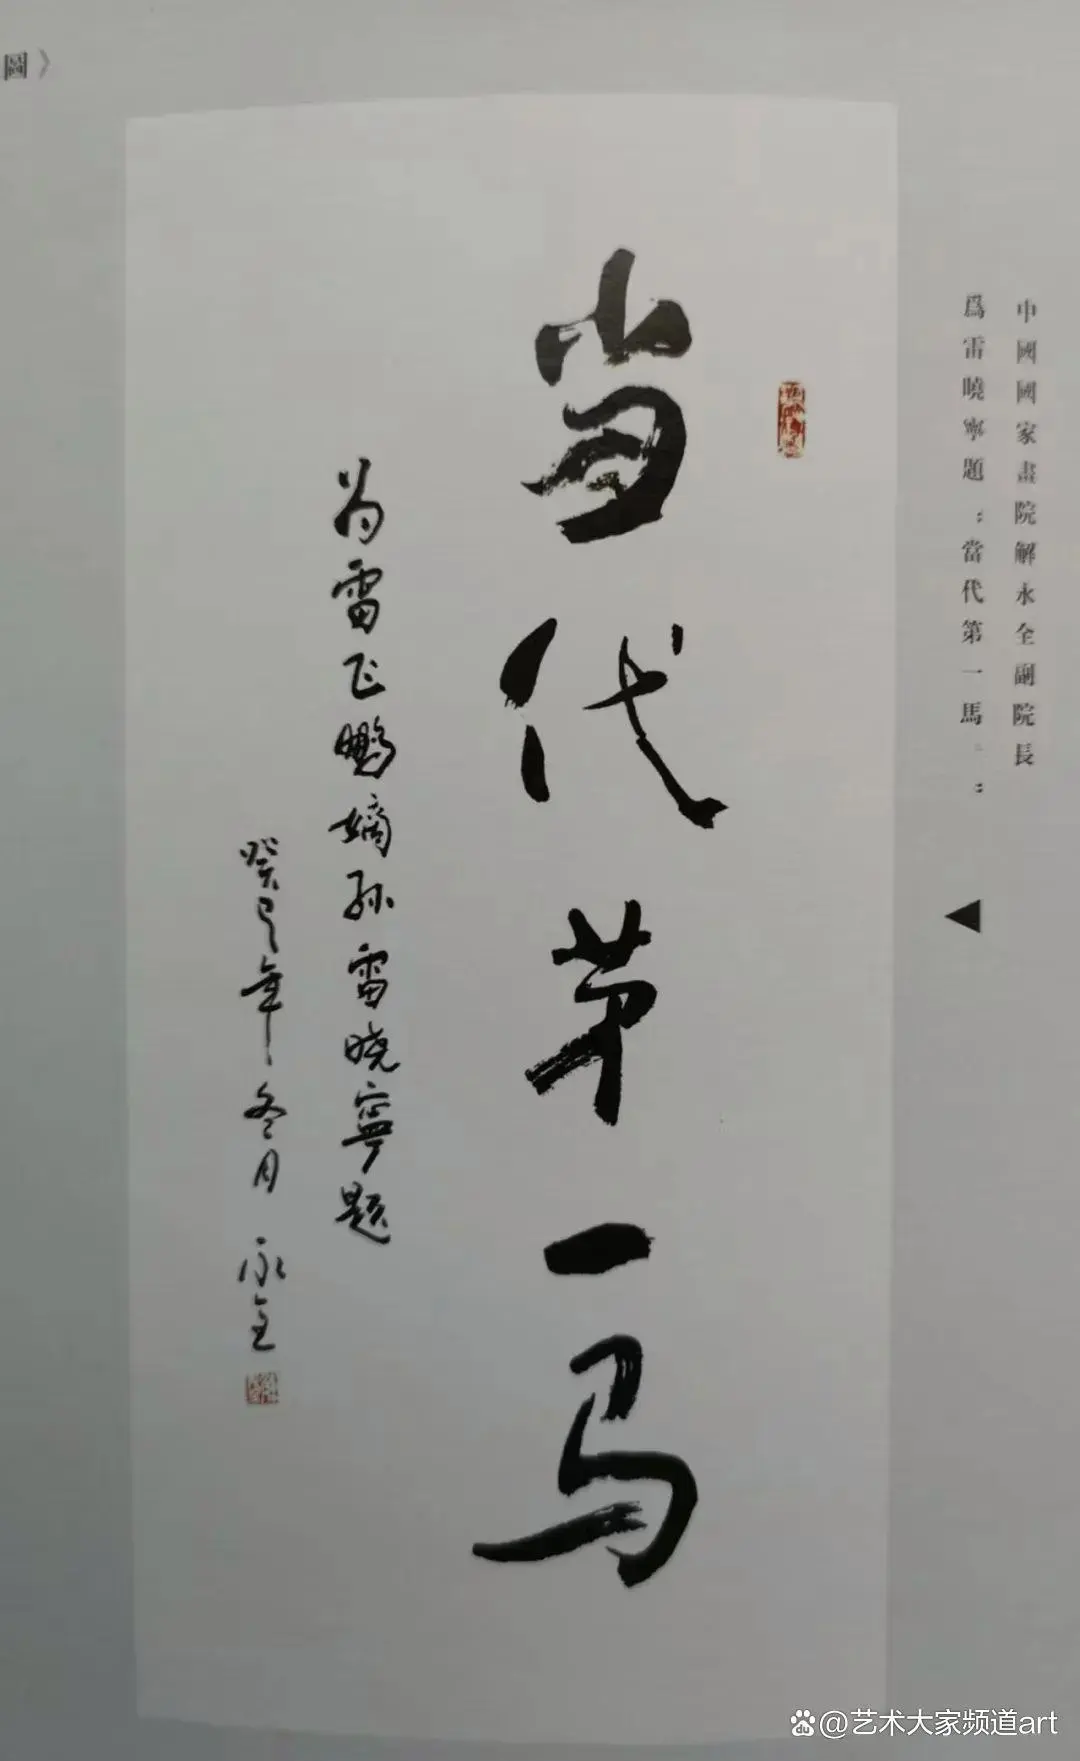 中國國家畫院解永全副院長
爲雷曉寧題：當代第一馬：
当代第一马
为雷飞鹏嫡孙雷晓寧题
癸巳年冬月 永全
圖》
@艺术大家频道art